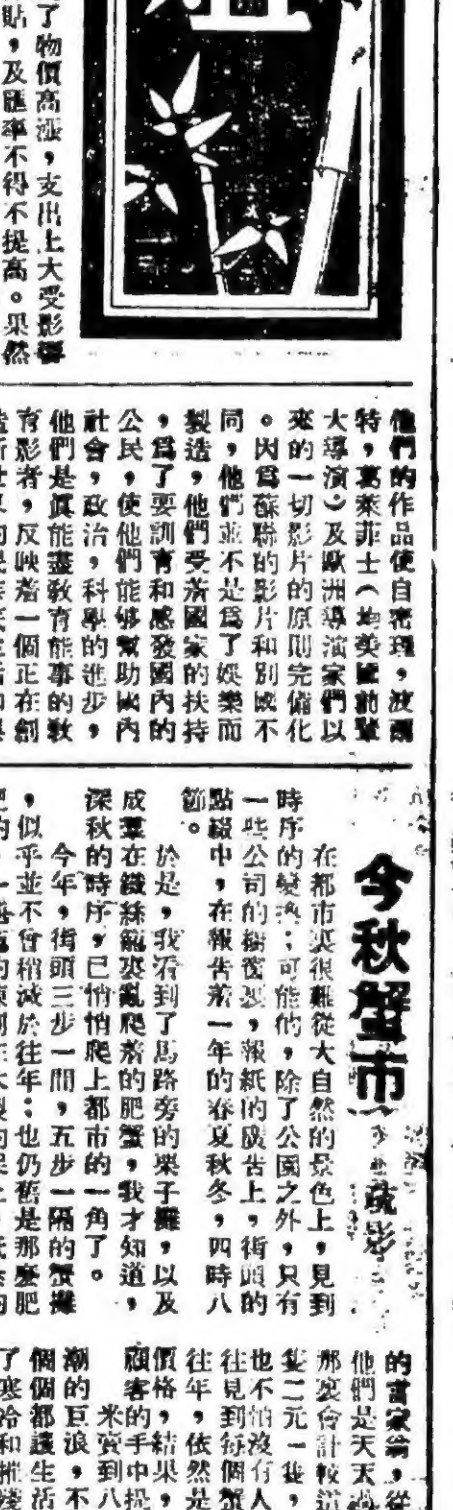 了物價高漲，支出上大受影響
貼，及匯率不得不提高。果然
他們的作品使自
特，萬萊菲士（均美國前輩
大導演）及歐洲導演家們以
來的一切影片的原則完備化
。因爲蘇聯的影片和別國不
同，他們並不是爲了娛樂而
製造，他們受着國家的扶持
，爲了要訓育和感發國內的
公民，使他們能够幫助國內
社會，政治，科學的進步，
他們是眞能盡敎育能事的敎
育影者，反映着一個正在創
今秋蟹市
疏影
在都市裏很難從大自然的景色上，見到
時序的變換；可能的，除了公園之外，只有
一些公司的櫥窗裏，報紙的廣告上，街頭的
點綴中，在報告着一年的春夏秋冬，四時八
節。
於是，我看到了馬路旁的栗子攤，以及
成羣在鐵絲籠裏亂爬着的肥蟹，我才知道，
深秋的時序，已悄悄爬上都市的一角了。
今年，街頭三步一間，五步一隔的蟹攤
，似乎並不曾稍減於往年：也仍舊是那麼肥
的富家翁，從
他們是天天
那裏會計較
隻二元一隻，
也不怕沒有人
往見到每個蟹
往年，依然是
價格，結果，
顧客的手中提
米賣到八
潮的巨浪，不
個個都讓生活
了寒冷和